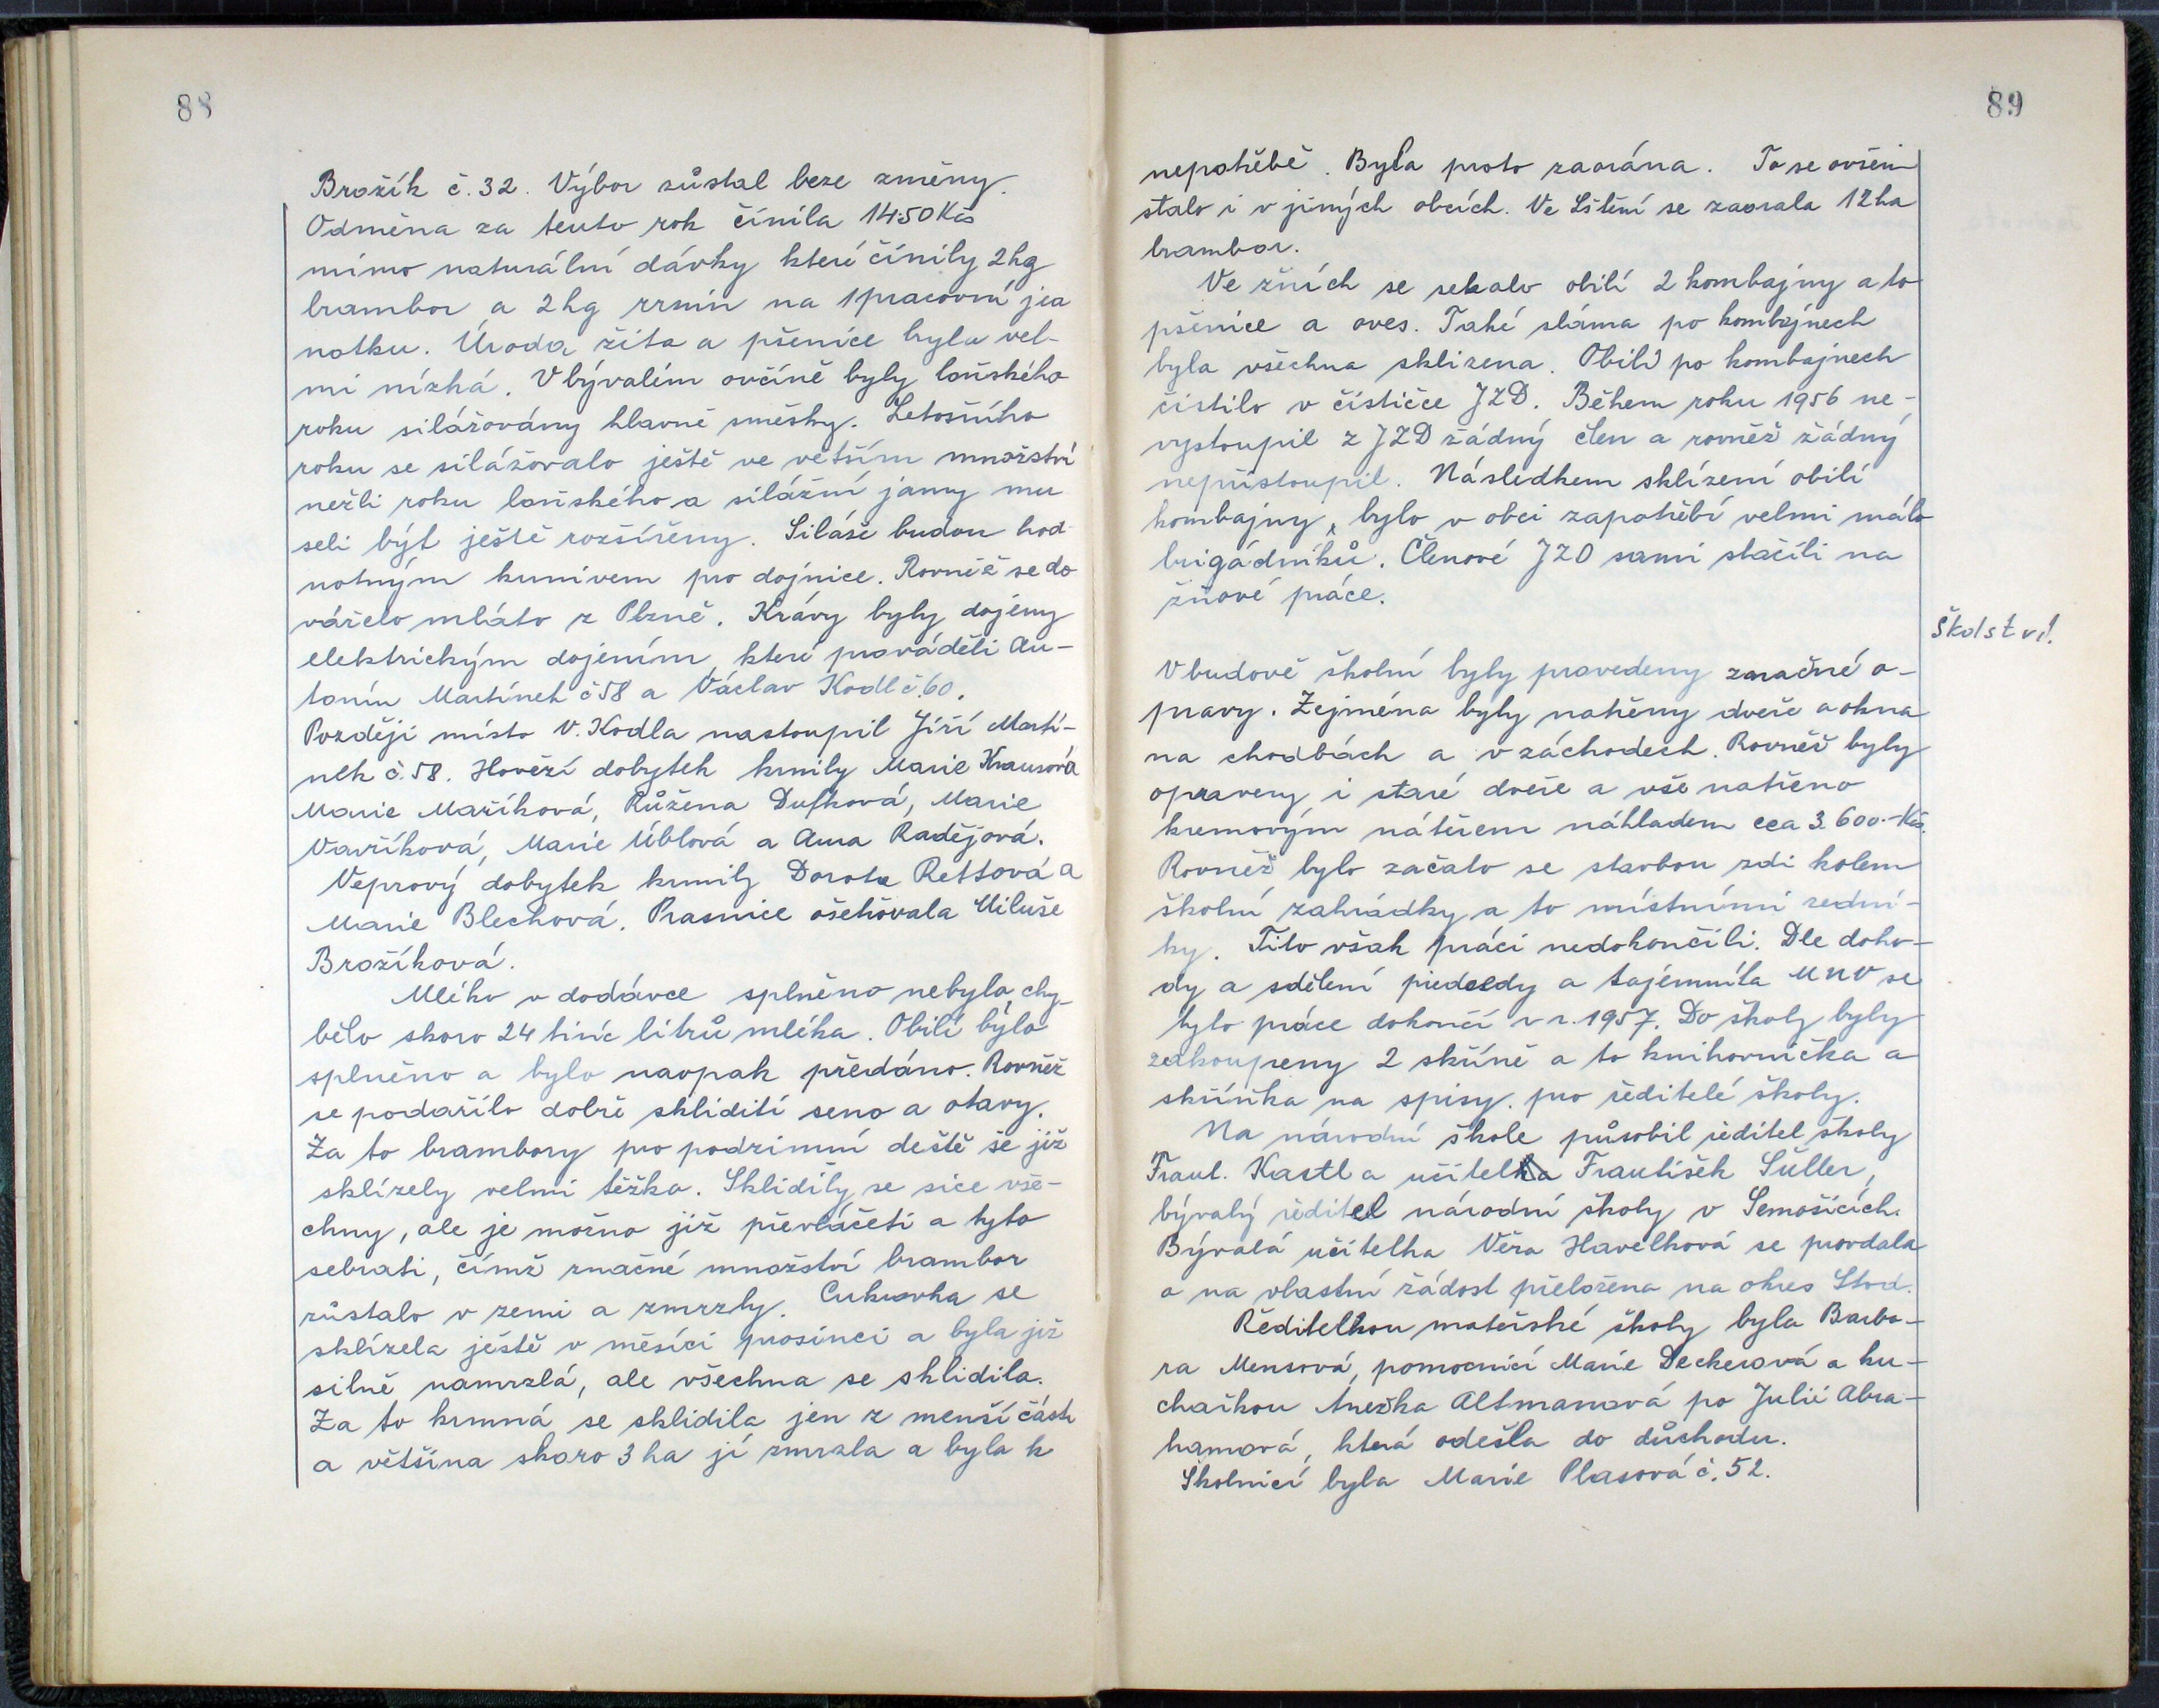 88
Brožík č. 32. Výbor zůstal beze změny.
Odměna za tento rok činila 14.50 Kčs
mimo naturální dávky které činily 2 kg
brambor a 2 kg zrnin na 1 pracovní jed
notku. Úroda žita a pšenice byla vel-
mi nízká. V bývalém ovčíně byly loňského
roku silážovány hlavně směsky. Letošního
roku se silážovalo ještě ve větším množství
nežli roku loňského a silážní jamy mu
seli být ještě rozšířeny. Siláže budou hod
notným krmivem pro dojnice. Rovněž se do
váželo mláto z Plzně. Krávy byly dojeny
elektrickým dojením, které prováděli An-
tonín Martínek č 58 a Václav Kodl č. 60.
Později místo V. Kodla nastoupil Jiří Martí-
nek č. 58. Hovězí dobytek krmily Marie Krausová
Marie Maříková, Růžena Dufková, Marie
Vavříková, Marie Úblová a Anna Radějová.
Vepřový dobytek krmily Dorota Rettová a
Marie Blechová. Prasnice ošetřovala Miluše
Brožíková.
Mléko v dodávce splněno nebylo, chy-
bělo skoro 24 tisíc litrů mléka. Obilí bylo
splněno a bylo naopak předáno. Rovněž
se podařilo dobře skliditi seno a otavy.
Za to brambory pro podzimní deště se již
sklízely velmi těžko. Sklidily se sice vše-
chny, ale je možno již převláčeti a tyto
sebrati, čímž značné množství brambor
zůstalo v zemi a zmrzly. Cukrovka se
sklízela ještě v měsíci prosinci a byla již
silně namrzlá, ale všechna se sklidila.
Za to krmná se sklidila jen z menší části
a většina skoro 3 ha jí zmrzla a byla k
89
nepotřebě. Byla proto zaorána. To se ovšem
stalo i v jiných obcích. Ve Štítění se zaorala 12 ha
brambor.
Ve žních se sekalo obilí 2 kombajny a to
pšenice a oves. Také sláma po kombajnech
byla všechna sklizena. Obilí po kombajnech
čistilo v čističce JZD. Během roku 1956 ne-
vystoupil z JZD žádný člen a rovněž žádný
nepřistoupil. Následkem sklízení obilí
kombajny, bylo v obci zapotřebí velmi málo
brigádníků. Členové JZD sami stačili na
žňové práce.
Školství.
V budově školní byly provedeny značné o-
pravy. Zejména byly natřeny dveře a okna
na chodbách a v záchodech. Rovněž byly
opraveny i staré dveře a vše natřeno
kremovým nátěrem nákladem cca 3.600.- Kčs.
Rovněž bylo začato se stavbou zdi kolem
školní zahrádky a to místními zední-
ky. Tito však práci nedokončili. Dle doho-
dy a sdělení předsedy a tajemníka MNV se
tyto práce dokončí v r. 1957. Do školy byly
zakoupeny 2 skříně a to knihovnička a
skříňka na spisy pro ředitele školy.
Na národní škole působil ředitel školy
Frant. Kastl a učitel František Süller,
bývalý ředitel národní školy v Semošicích.
Bývalá učitelka Věra Havelková se provdala
a na vlastní žádost přeložena na okres Stod.
Ředitelkou mateřské školy byla Barbo-
ra Mensová, pomocnicí Marie Deckerová a ku-
chařkou Anežka Altmanová po Julii Abra-
hamová, která odešla do důchodu.
Školnicí byla Marie Plasová č. 52.